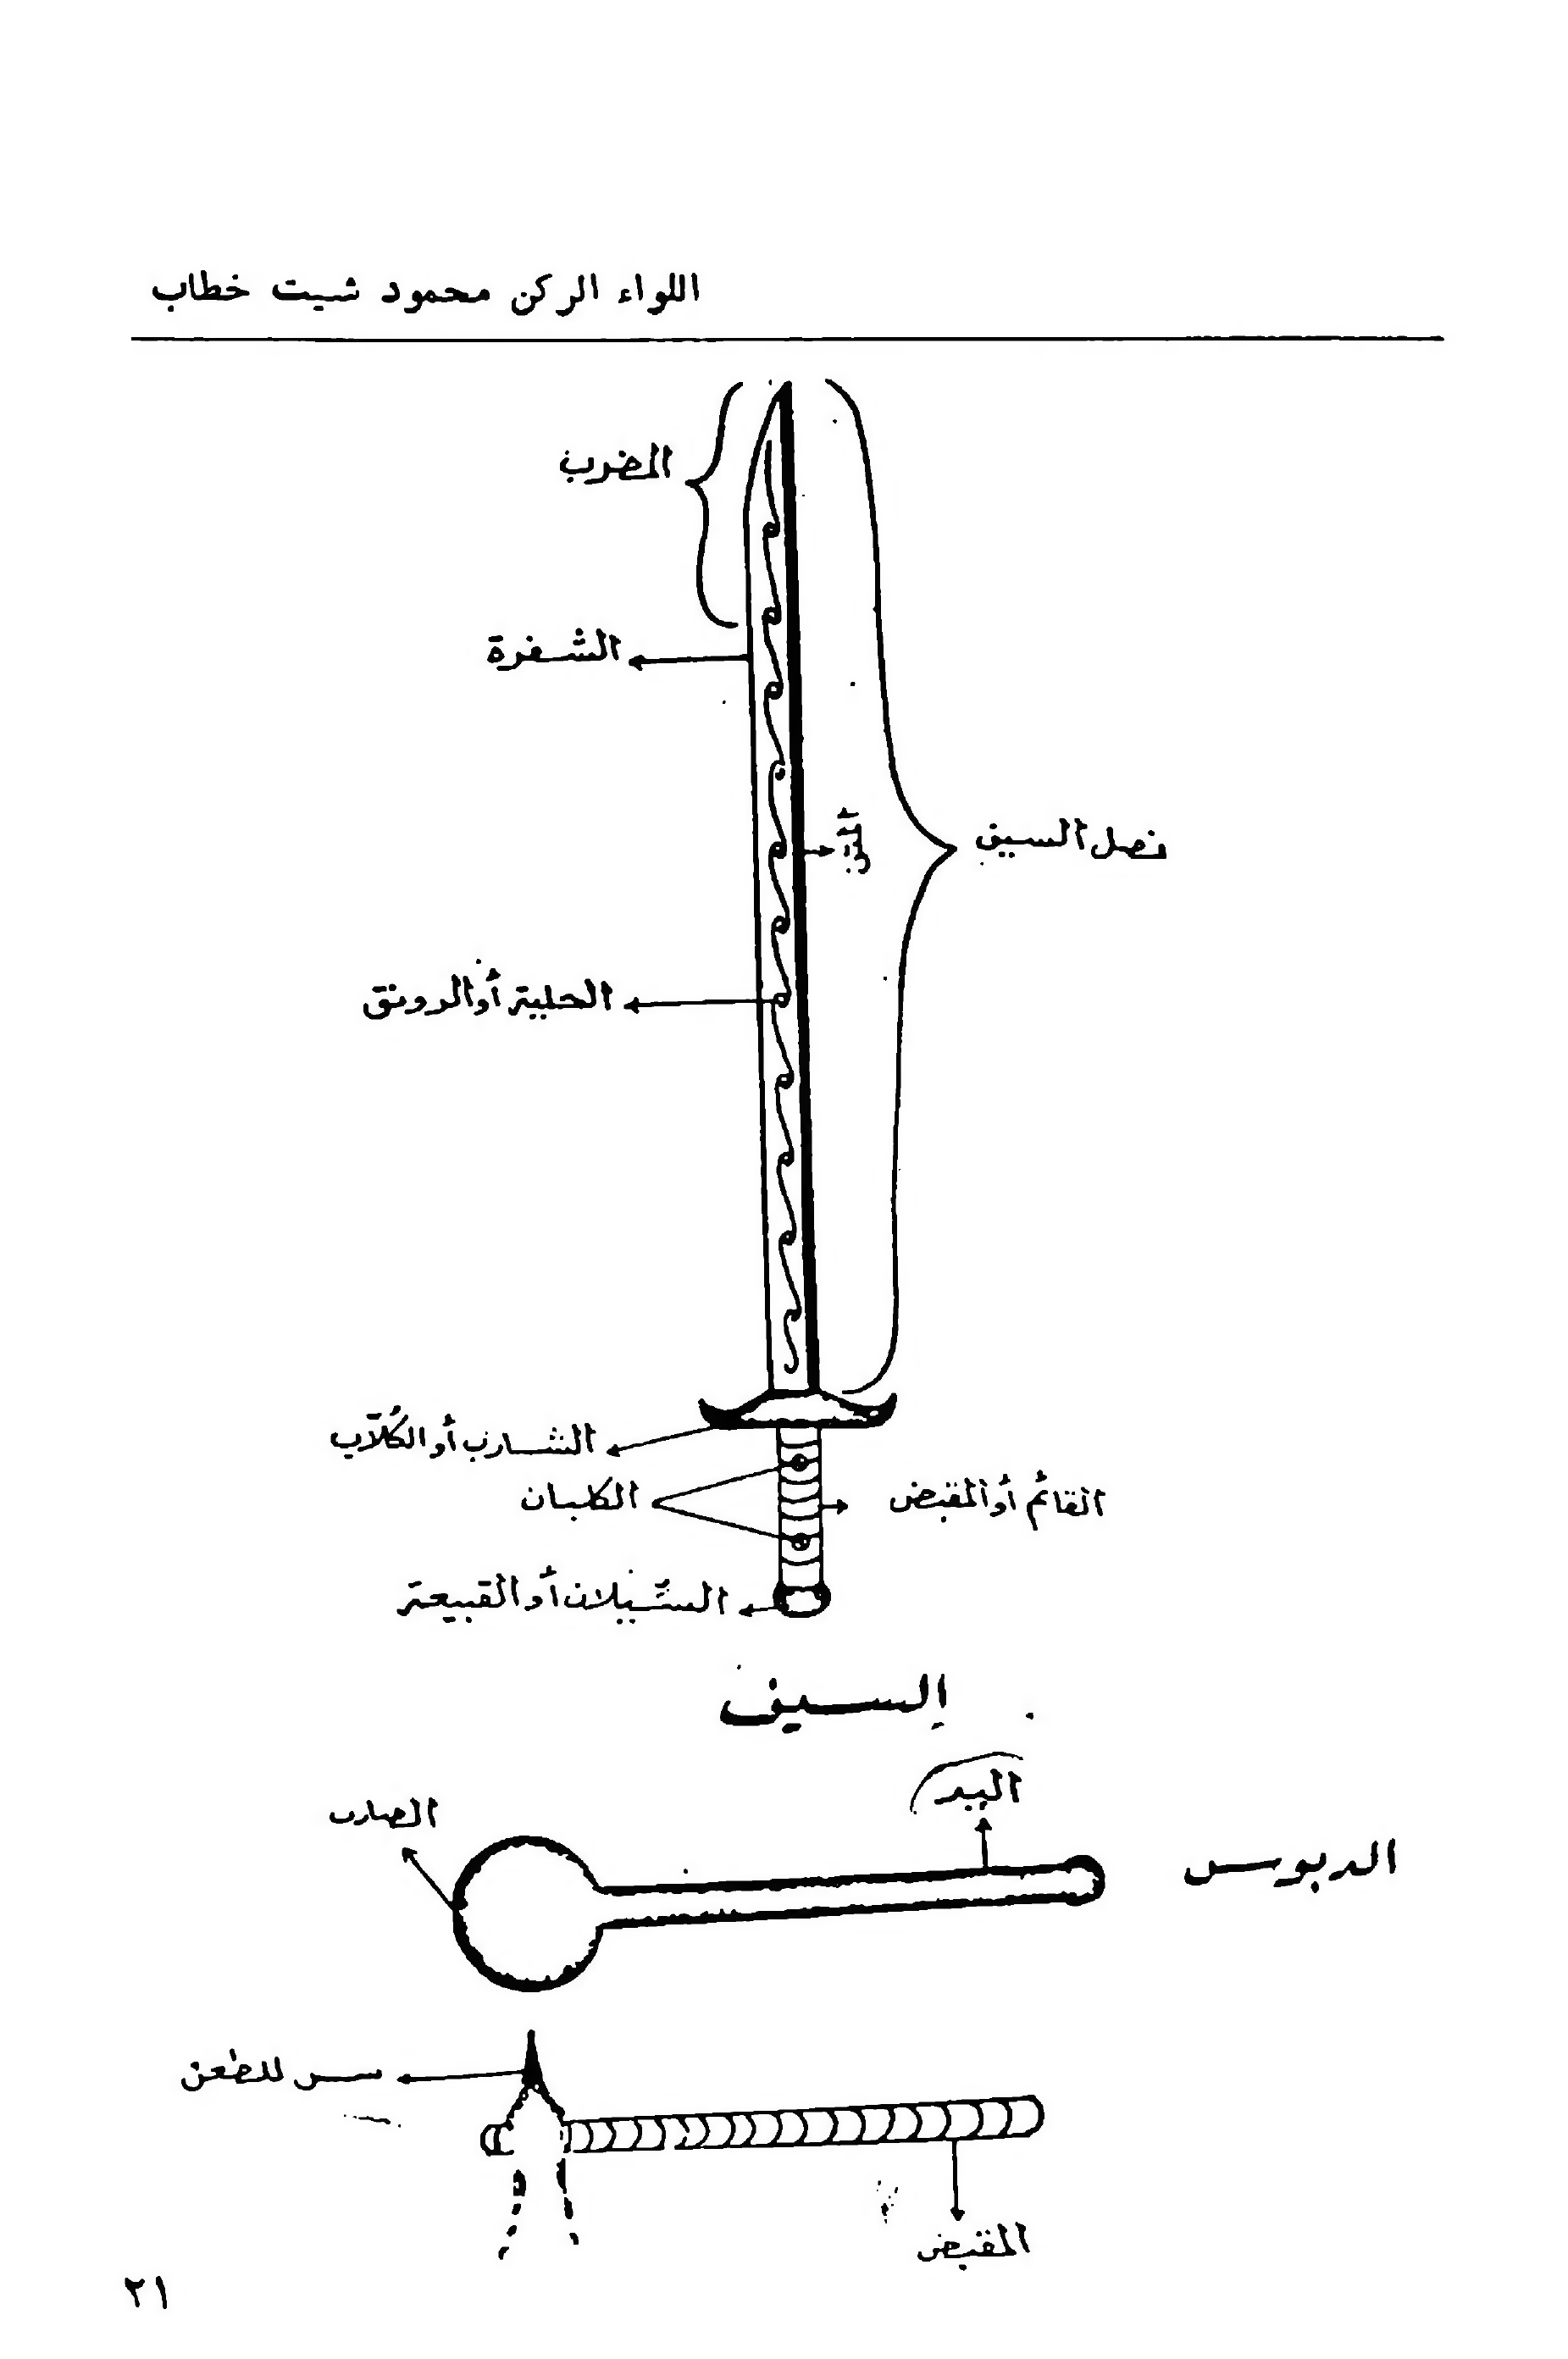 اللواء الركن محمود شيت خطاب
المضرب
الشفرة
نصل السيف
المتن
الحلية أو الرونق
الشارب أو الكلّاب
الكلبان
القائم أو المقبض
السّيلان أو القبيعة
السيف
اليد
الضارب
الدبوس
للطعن
المقبض
٢١